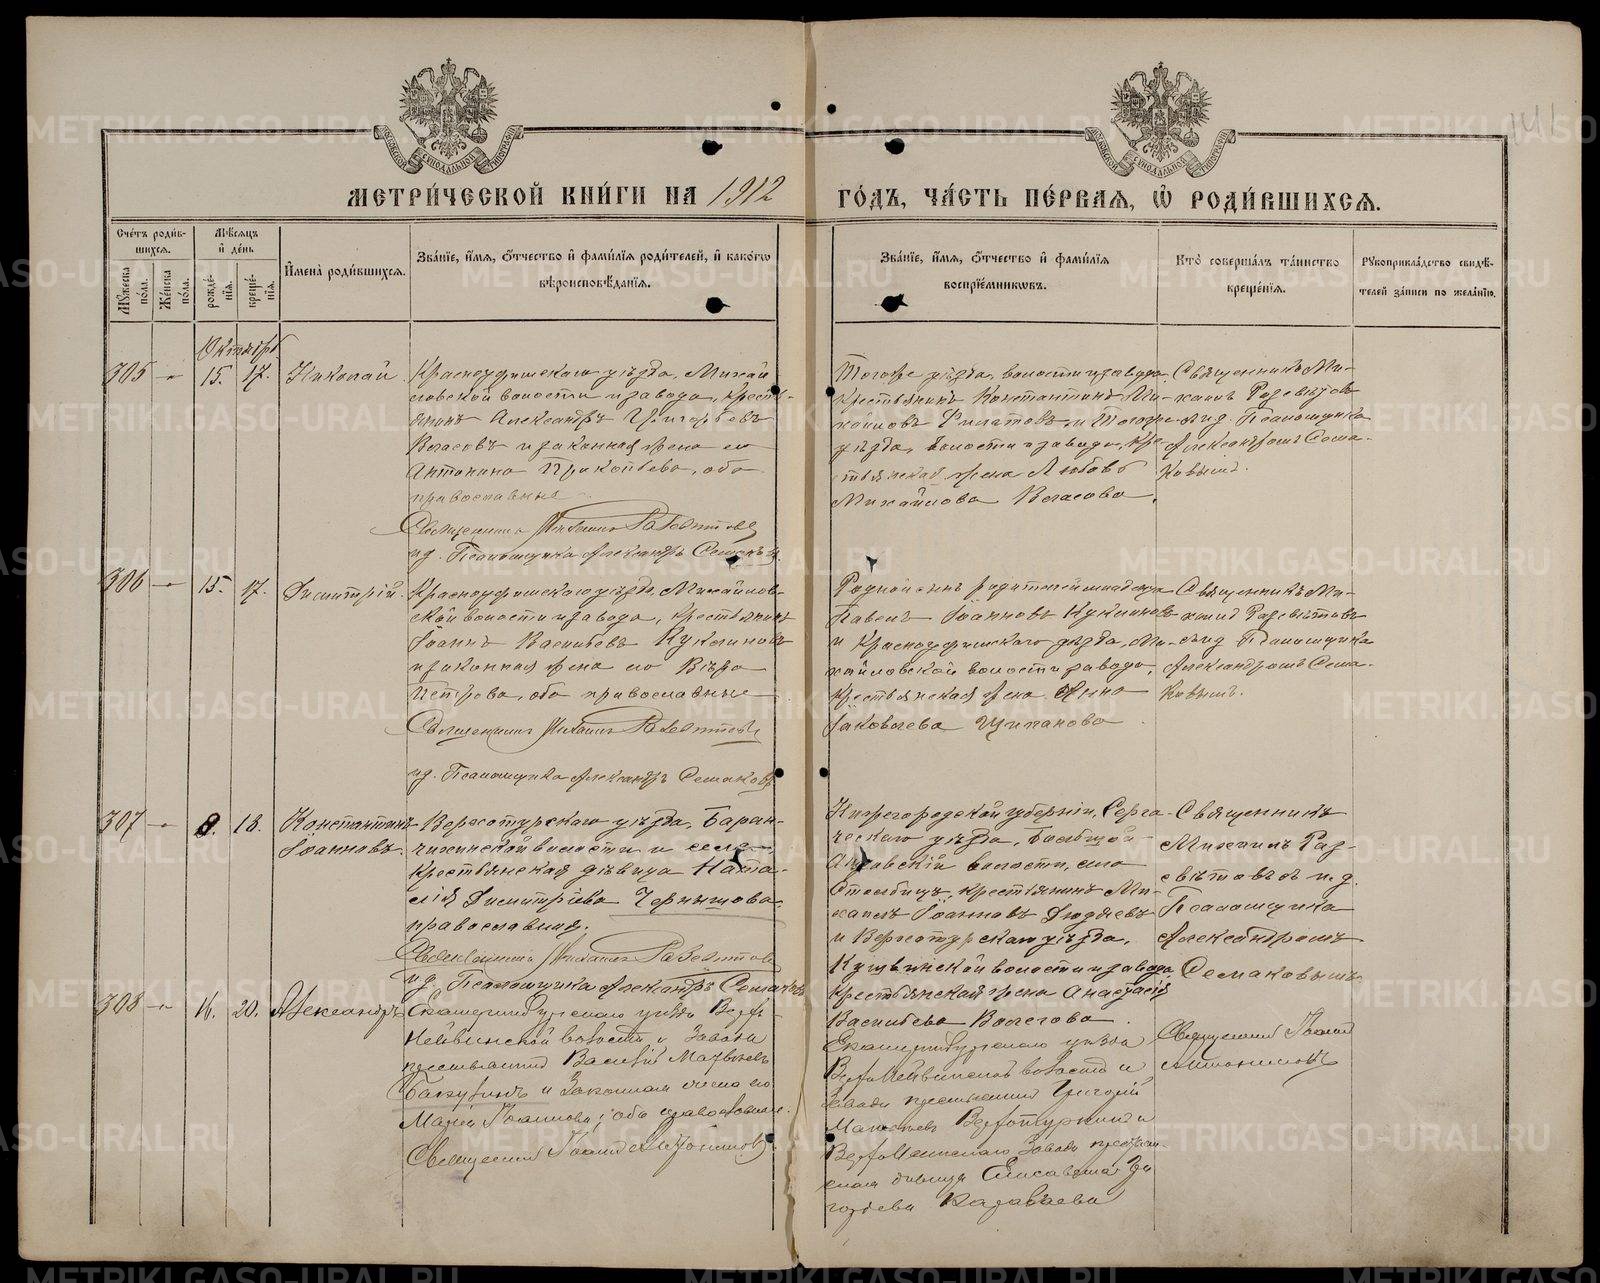 МЕТРИ́ЧЕСКОЙ КНИ́ГИ НА 1912 ГО́ДЪ, ЧА́СТЬ ПЕ́РВАЯ, Ѡ҆ РОДИ́ВШИХСЯ.
141
Сче́тъ роди́вшихся.
Му́жеска по́ла.
Же́нска по́ла.
Мѣ́сяцъ и҆ де́нь
рожде́нїя.
креще́нїя.
И҆мена̀ роди́вшихся.
Зва́нїе, и҆́мя, о҆́тчество и҆ фами́лїя роди́телей, и҆ како́гѡ вѣроисповѣ́данїя.
Зва́нїе, и҆́мя, о҆́тчество и҆ фами́лїя воспрїе́мниковъ.
Кто̀ соверша́лъ та́инство креще́нїя.
Рукоприкла́дство свидѣ́телей за́писи по жела́нїю.
Октябрь
305 — 15. 17. Николай
Красноуфимскаго уѣзда, Михай
ловской волости и завода, кресть-
янинъ Александръ Григорьевъ
Власовъ и законная жена его
Антонина Прокопьева, оба
православные
Священникъ Михаилъ Разсвѣтовъ
и.д. Псаломщика Александръ Семаковъ
Тогоже уѣзда, волости и завода,
крестьянинъ Константинъ Ми-
хайловъ Филатовъ и тогоже
уѣзда, волости и завода, кре-
стьянская жена Любовь
Михайлова Власова.
Священникъ Ми-
хаилъ Разсвѣтовъ
съ и.д. Псаломщика
Александромъ Сема-
ковымъ.
306 — 15. 17. Димитрій.
Красноуфимскаго уѣзда, Михайлов-
ской волости и завода, крестьянинъ
Іоаннъ Васильевъ Куклиновъ
и законная жена его Вѣра
Петрова, оба православные
Священникъ Михаилъ Разсвѣтовъ
и.д. Псаломщика Александръ Семаковъ
Родной сынъ родителей младенца
Павелъ Іоанновъ Куклиновъ
и Красноуфимскаго уѣзда, Ми-
хайловской волости и завода,
крестьянская жена Анна
Іаковлева Щипанова
Священникъ Ми-
хаилъ Разсвѣтовъ
съ и.д. Псаломщика
Александромъ Сема-
ковымъ.
307 — 8. 18. Константинъ
Іоанновъ.
Верхотурскаго уѣзда, Баран-
чинской волости и села
крестьянская дѣвица Ната-
лія Димитріева Чернышова
православная.
Священникъ Михаилъ Разсвѣтовъ
и.д. Псаломщика Александръ Семаковъ
Нижегородской губерніи, Серга-
ческаго уѣзда,
волости, село
крестьянинъ Ми-
хаилъ Іоанновъ
и Верхотурскаго уѣзда,
Кушвинской волости и завода
крестьянская жена Анастасія
Васильева Волегова.
Священникъ
Михаилъ Раз-
свѣтовъ съ и.д.
Псаломщика
Александромъ
Семаковымъ
308 — 16. 20. Александръ
Екатеринбургскаго уѣзда Верх-
Нейвинской волости и завода
крестьянинъ Василій Матвѣевъ
и законная жена его
Марія Іоаннова, оба православные.
Священникъ Іоаннъ
Екатеринбургскаго уѣзда
Верхнейвинской волости и
завода крестьянинъ Григорій
и
Верхнейвинскаго завода крестьян-
ская дѣвица Елисавета
Караваева
Священникъ Іоаннъ